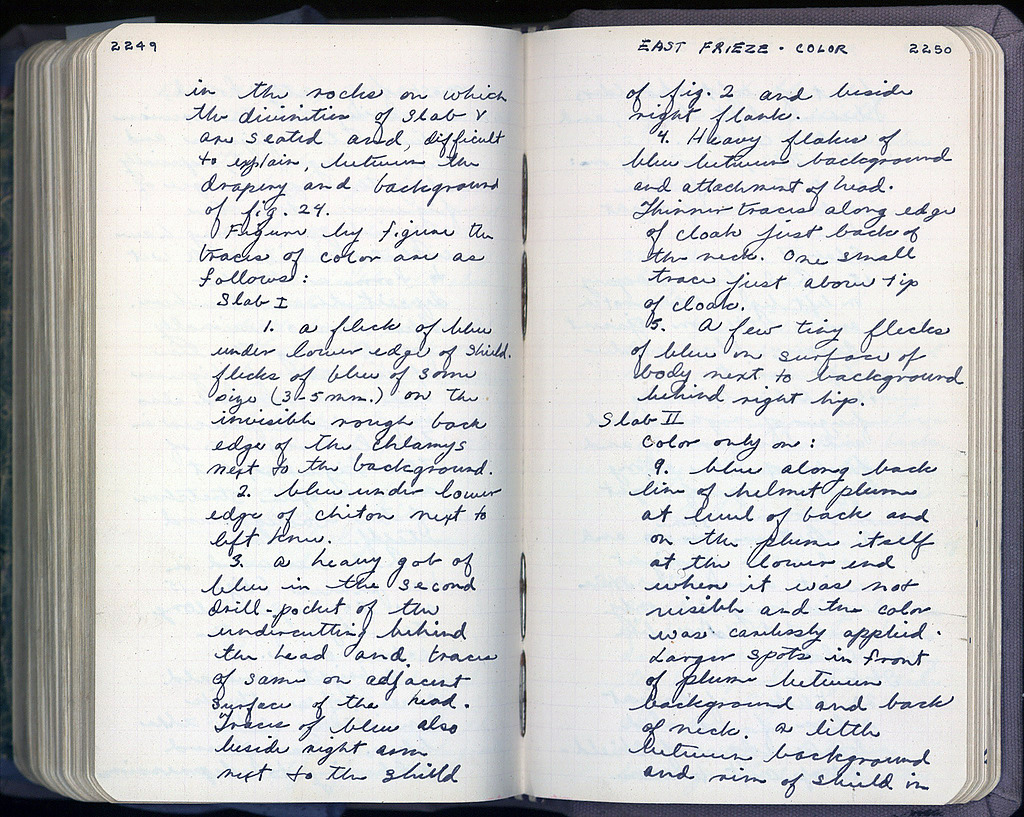 2249
in the rocks on which
the divinities of Slab V
are seated and, difficult
to explain, between the
drapery and background
of fig. 24.
Figure by figure the
traces of color are as
follows:
Slab I
1. a fleck of blue
under lower edge of shield.
flecks of blue of same
size (3-5 mm.) on the
invisible rough back
edge of the chlamys
next to the background.
2. blue under lower
edge of chiton next to
left knee.
3. a heavy gob of
blue in the second
drill-pocket of the
undercutting behind
the head and traces
of same on adjacent
surface of the head.
Traces of blue also
beside right arm
next to the shield
EAST FRIEZE · COLOR
2250
of fig. 2 and beside
right flank.
4. Heavy flakes of
blue between background
and attachment of head.
Thinner traces along edge
of cloak just back of
the neck. One small
trace just above tip
of cloak.
5. A few tiny flecks
of blue on surface of
body next to background
behind right hip.
Slab II
Color only on:
9. blue along back
line of helmet plume
at level of back and
on the plume itself
at the lower end
when it was not
visible and the color
was carelessly applied.
Larger spots in front
of plume between
background and back
of neck. a little
between background
and rim of shield in